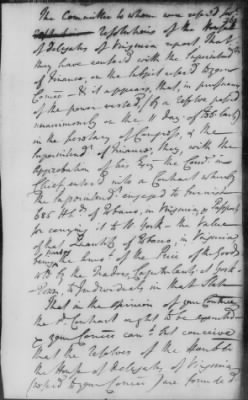 The Committee to whom were referd
Resolutions of the House
of Delegates of Virginia report that
they have conferd with the Superintend
of Finance, on the subject referd to your
Comee & it appears, that, in pursuance
of the power vested, by a resolve passed
unanimously on the 11 day of Feb. last
in the Secretary of Congress, & the
Superintendt of Finance; they, with the
Approbation of his Excy the Comdr in
Chief entered into a Contract whereby
the Superintendt engaged to furnish
685 Hds of Tobacco, in Virginia, & Passports
for carrying it to N. York - the Value
of that Quantity of Tobacco, in Virginia
being the amot of the Price of the Goods
sold by the Traders, Capitulants, at York
Town, to Individuals in that State
That in the opinion of your Comtee
the sd Contract ought to be
& your Comee cant but conceive
that the resolves of the Honble
the House of Delegates of Virginia
referd to your Comee are founded